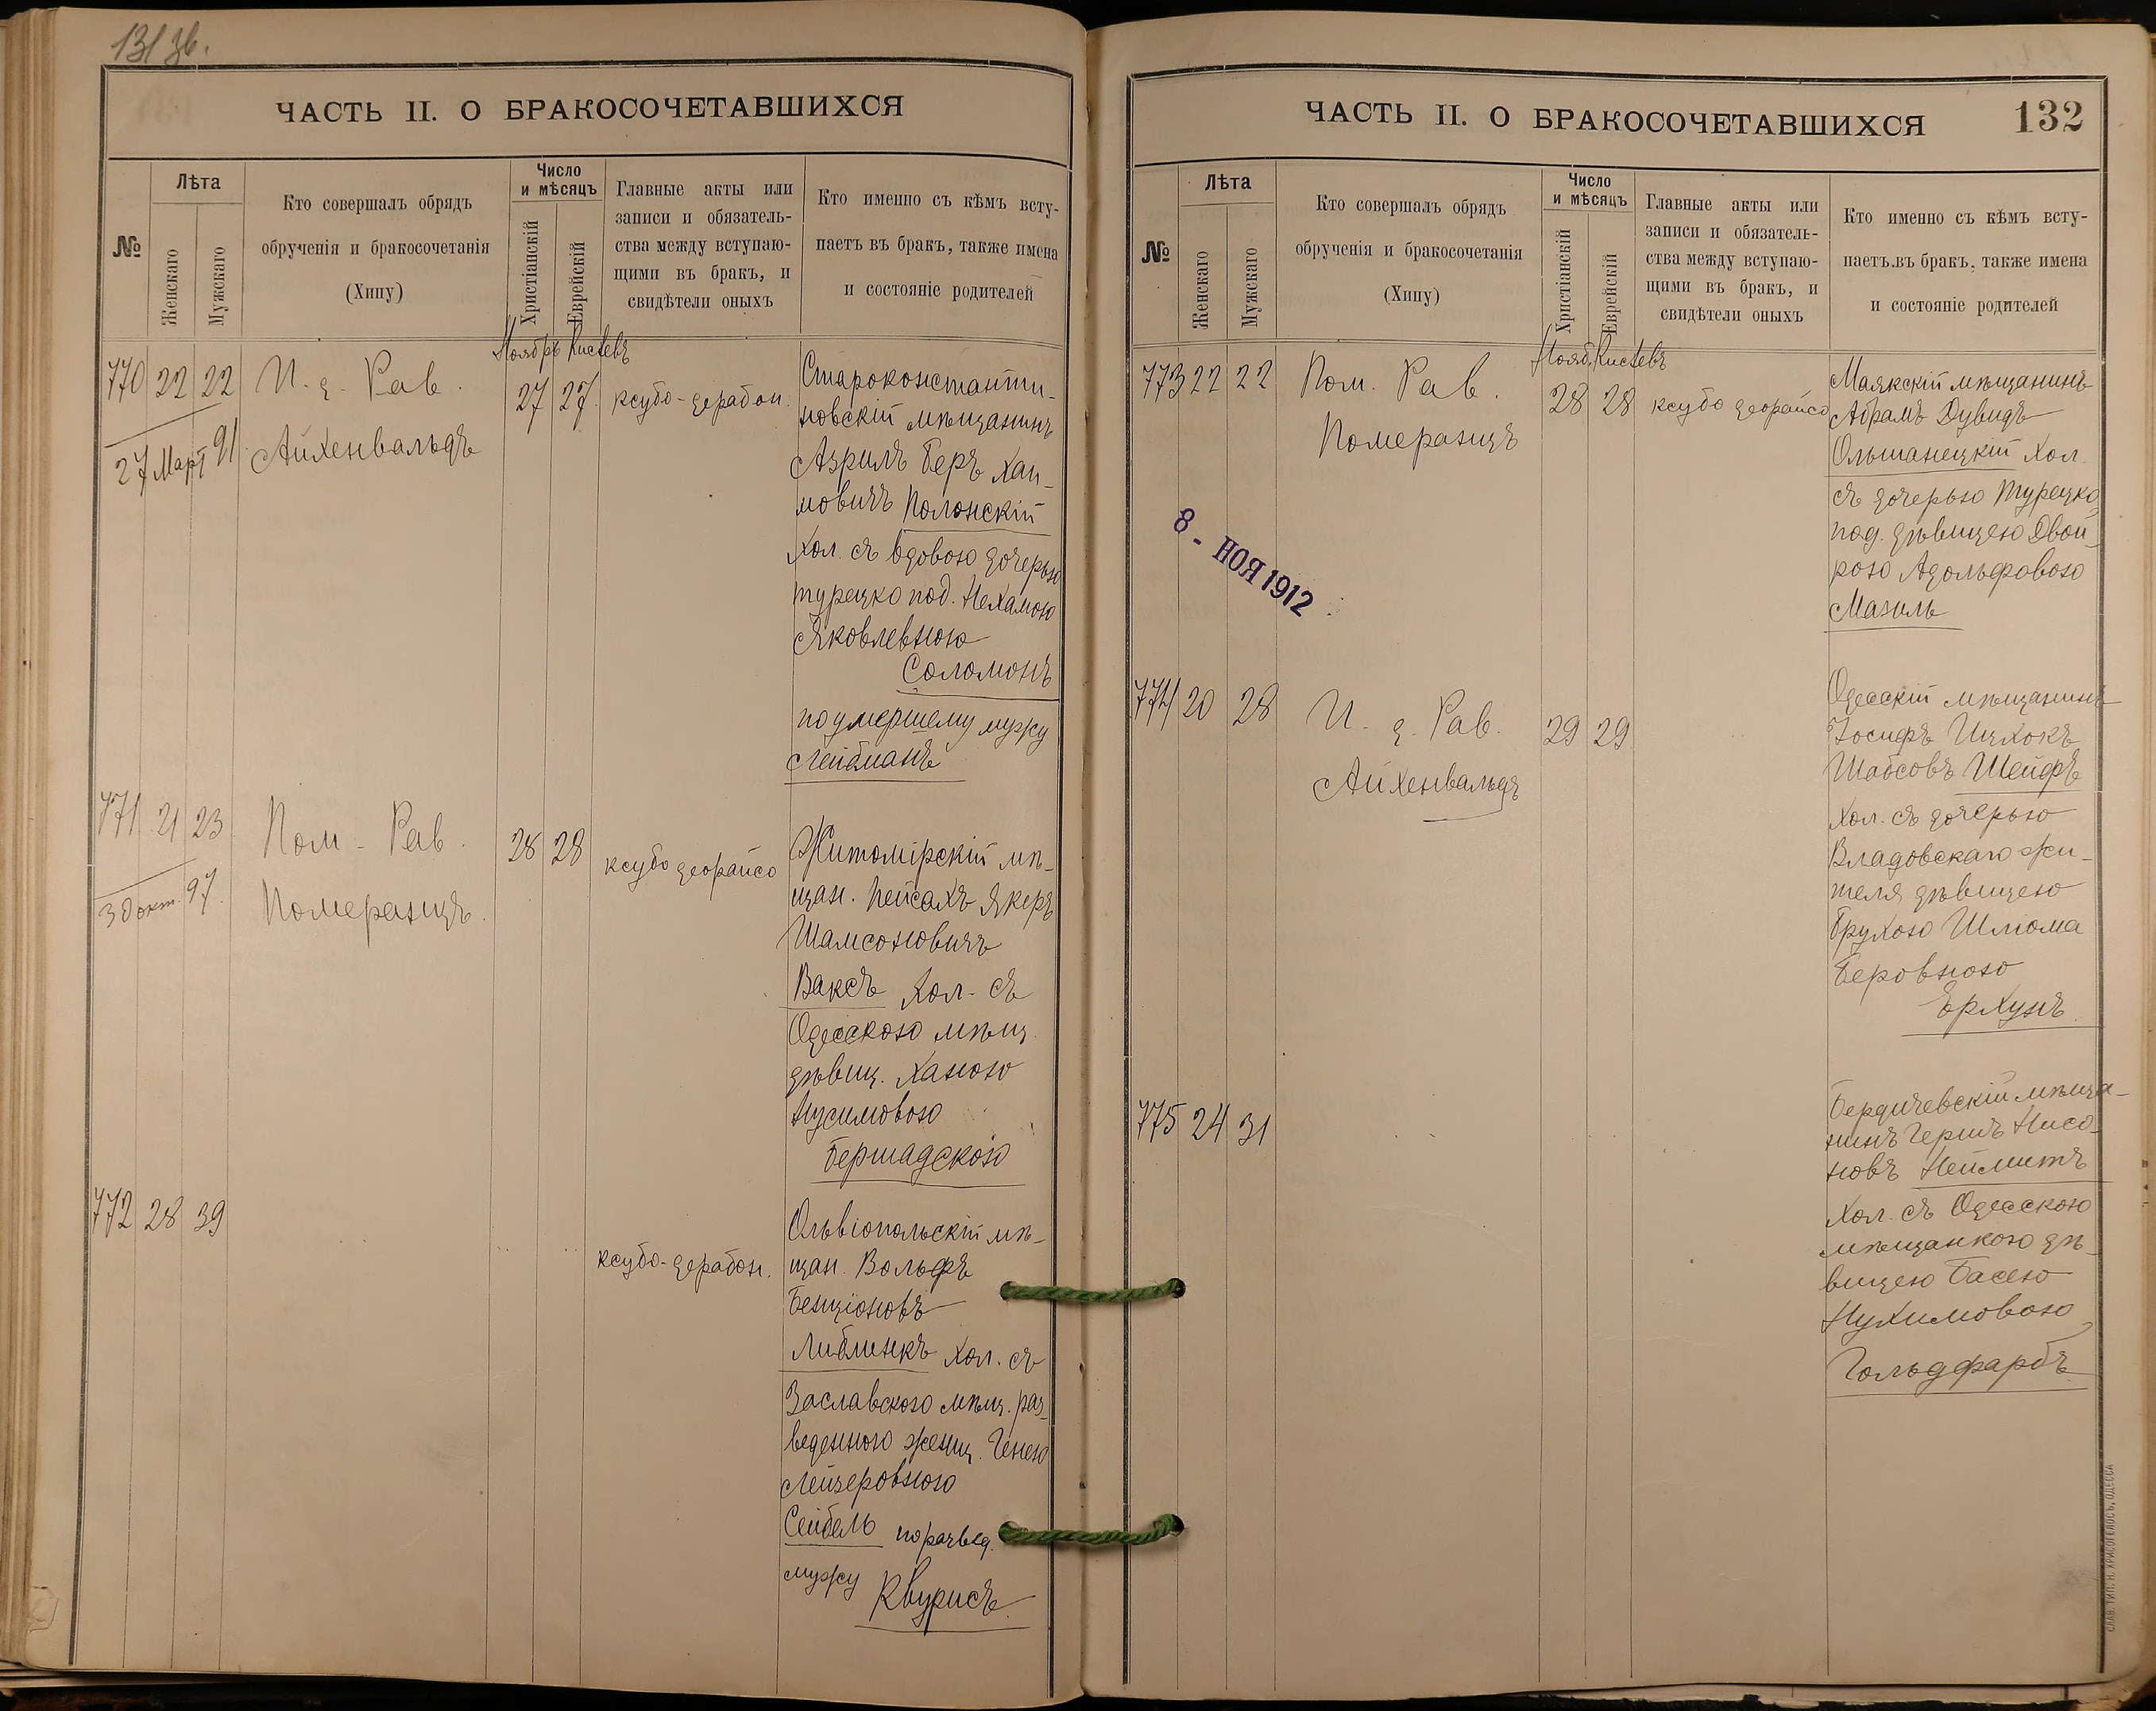 131 зв.
ЧАСТЬ II. О БРАКОСОЧЕТАВШИХСЯ
№
Лѣта
Женскаго
Мужскаго
Кто совершалъ обрядъ
обрученія и бракосочетанія
(Хипу)
Число
и мѣсяцъ
Христіанскій
Еврейскій
Главные акты или
записи и обязатель-
ства между вступаю-
щими въ бракъ, и
свидѣтели оныхъ
Кто именно съ кѣмъ всту-
паетъ въ бракъ, также имена
и состояніе родителей
Ноябрь Кислевъ
770 22 22 И. д. Рав.
Айхенвальдъ
27 27 ксубо-дерабон.
27 Март 91
Староконстанти-
новскій мѣщанинъ
Азрилъ Беръ Хаи-
мовичъ Полонскій
Хол. съ вдовою дочерью
турецко под. Нехамою
Яковлевною
Соломонъ
по умершему мужу
Лейбманъ
771 21 23 Пом. Рав.
Померанцъ.
28 28 ксубо деорайсо
30 окт. 97.
Житомірскій мѣ-
щан. Пейсахъ Якеръ
Шамсоновичъ
Ваксъ Хол. съ
Одесскою мѣщ.
дѣвиц. Ханою
Нусимовою
Бершадскою
772 28 39
ксубо-дерабон.
Ольвіопольскій мѣ-
щан. Вольфъ
Бенціоновъ
Либлинкъ Хол. съ
Заславскою мѣщ. раз-
веденною женщ. Генею
Лейзеровною
Сейбель по развед.
мужу Квурисъ
ЧАСТЬ II. О БРАКОСОЧЕТАВШИХСЯ
132
№
Лѣта
Женскаго
Мужскаго
Кто совершалъ обрядъ
обрученія и бракосочетанія
(Хипу)
Число
и мѣсяцъ
Христіанскій
Еврейскій
Главные акты или
записи и обязатель-
ства между вступаю-
щими въ бракъ, и
свидѣтели оныхъ
Кто именно съ кѣмъ всту-
паетъ въ бракъ, также имена
и состояніе родителей
Нояб. Кислевъ
773 22 22 Пом. Рав.
Померанцъ
28 28 ксубо деорайсо
8 - НОЯ 1912
Маякскій мѣщанинъ
Абрамъ Дувидъ
Ольшанецкій Хол.
съ дочерью Турецко
под. дѣвицею Двой-
рою Адольфовою
Мазиль
774 20 28 И. д. Рав.
Айхенвальдъ
29 29
Одесскій мѣщанинъ
Іосифъ Ицхокъ
Шабсовъ Шейфъ
Хол. съ дочерью
Владовскаго жи-
теля дѣвицею
Брухою Шліома
Беровною
Ерхунъ
775 24 31
Бердичевскій мѣща-
нинъ Гершъ Нисо-
новъ Неймитъ
Хол. съ Одесскою
мѣщанкою дѣ-
вицею Басею
Нухимовою
Гольдфарбъ
СЛАВ. ТИП. Н. ХРИСОГЕЛОСЪ, ОДЕССА